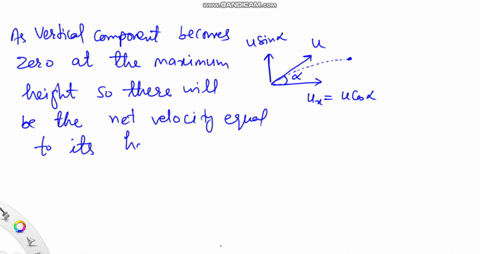 WWW.BANDICAM.COM
As Vertical Component becomes
zero at the maximum
height so there will
be the net velocity equal
to its h
usinα
u
α
uₓ = ucosα